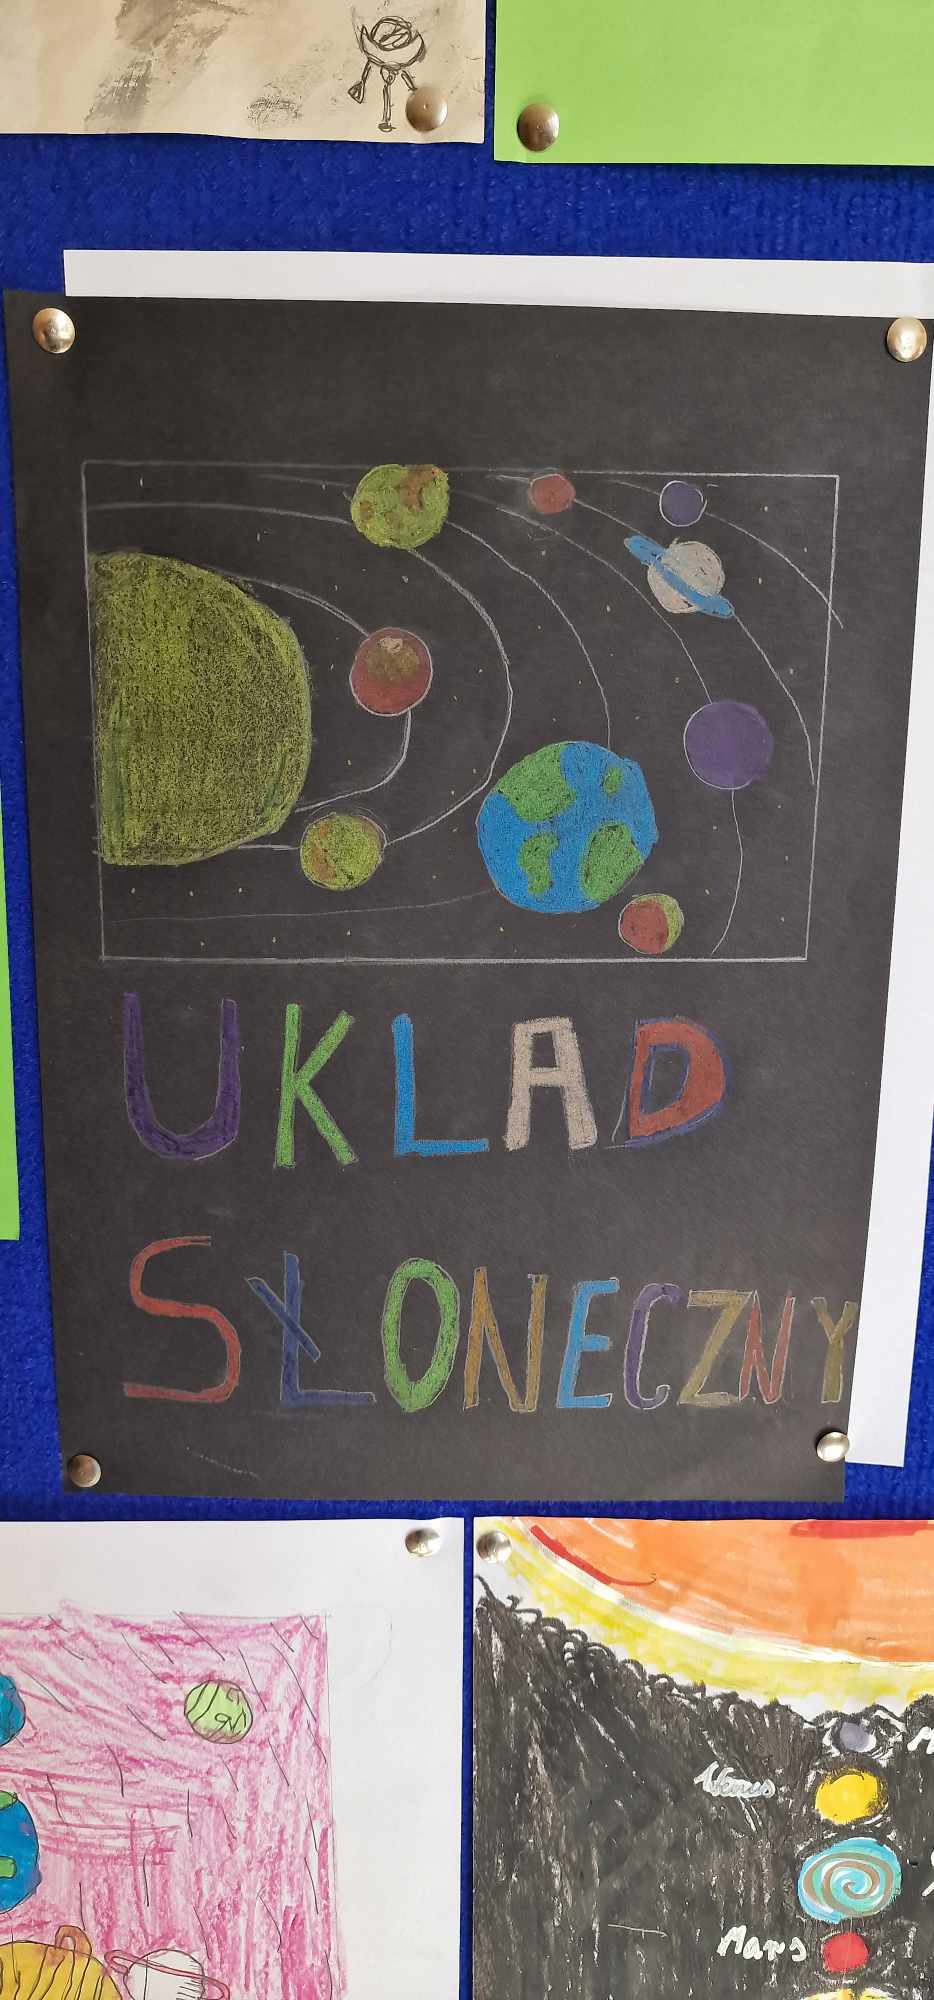 UKLAD
SŁONECZNY
Venus
Mars